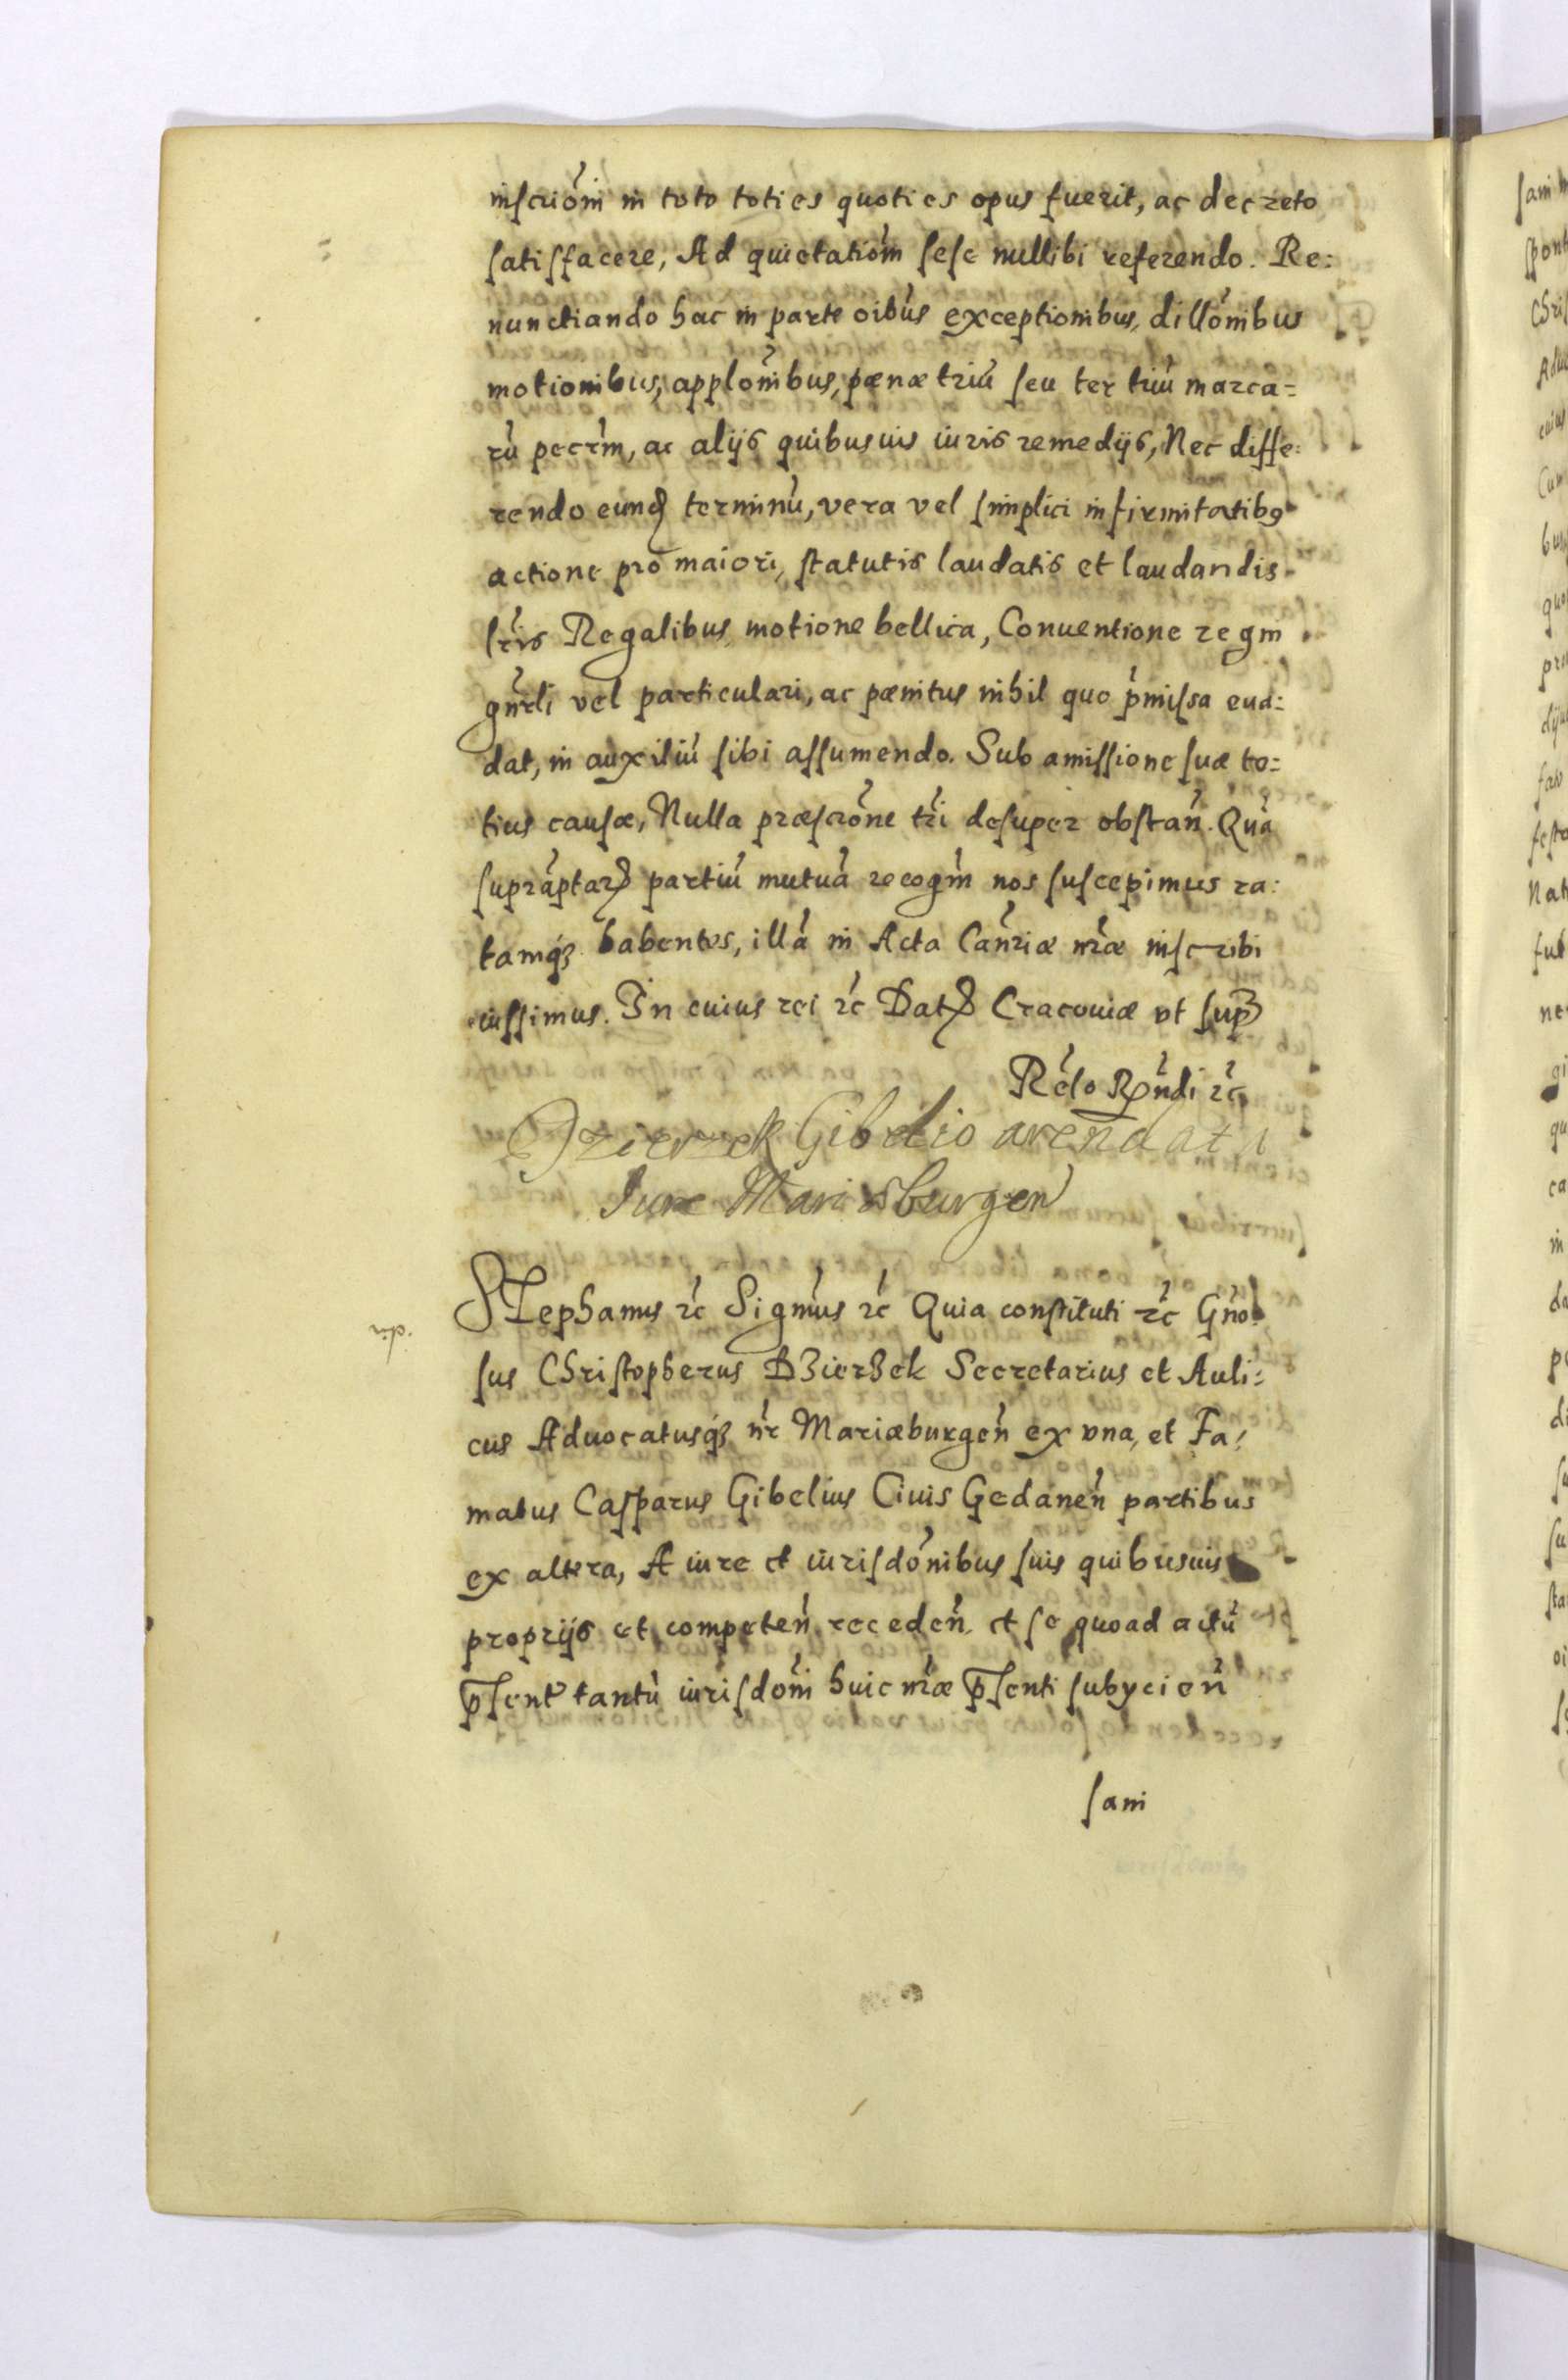 inscriōni in toto toties quoties opus fuerit, ac decreto
satisfacere, Ad quietatiōm sese nullibi referendo. Re:
nunctiando hac in parte oibus exceptionibus, dillōnibus
motionibus, applōnibus, pœnæ triū seu ter triū marca=
rū pectm, ac alijs quibusuis iuris remedijs, Nec diffe:
rendo eund terminū, vera vel simplici infirmitatibus
actione pro maiori, statutis laudatis et laudandis
lris Regalibus motione bellica, Conuentione regni
gnrli vel particulari, ac pœnitus nihil quo pmissa eua:
dat, in auxiliū sibi assumendo. Sub amissione suæ to=
tius causæ, Nulla præscrōne tri desuper obstan. Quā
supraptar partiū mutuā recogm nos suscepimus ra:
tamq habentes, illā in Acta Canriæ nræ inscribi
iussimus. In cuius rei rc Dat Cracouiæ vt sup
Relo Rndi rc
Dzierzek Gibelio arendat
Jure Mariæburgen
STephanus rc Signus rc Quia constituti rc Gno
sus Christopherus Dzierzek Secretarius et Auli:
cus Aduocatusq nr Mariæburgen ex vna, et Fa:
matus Casparus Gibelius Ciuis Gedanen partibus
ex altera, A iure et iurisdōnibus suis quibusuis
proprijs et competen receden et se quoad actū
psent tantū iurisdōni huic nræ psenti subycien
sani